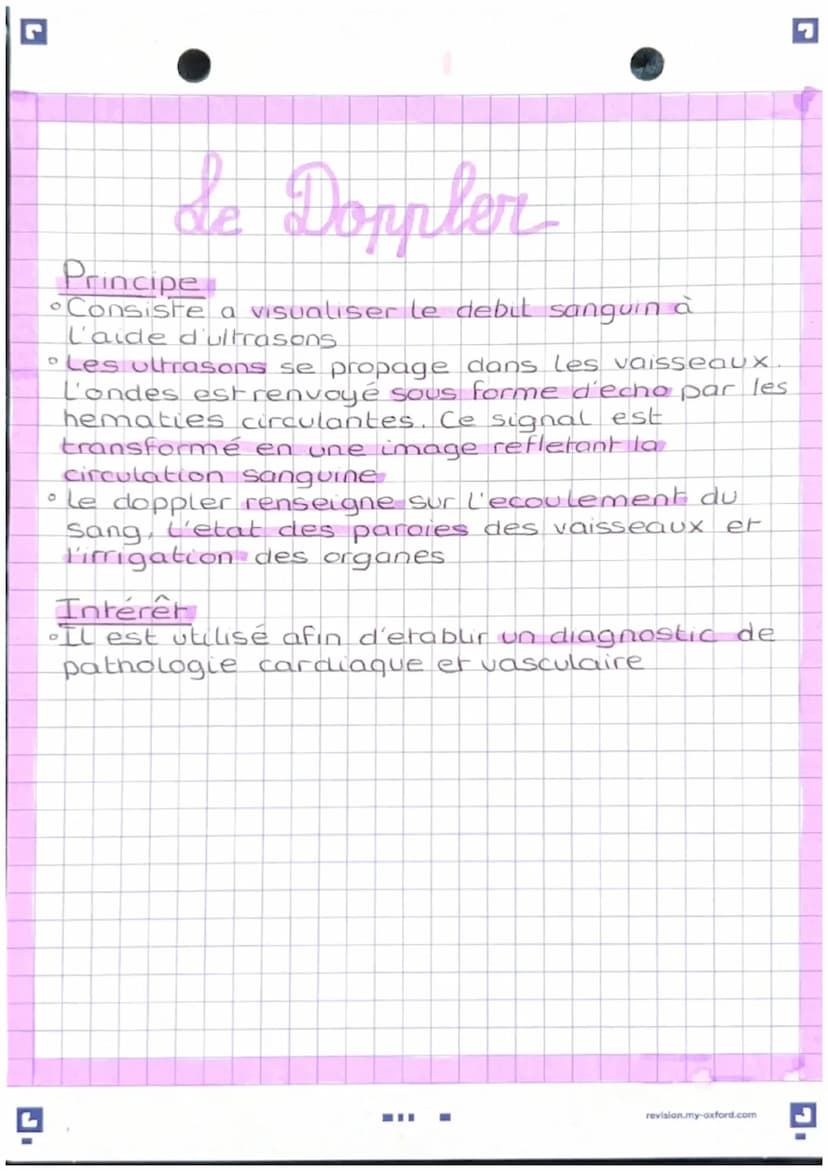 Le Doppler
Principe
°Consiste a visualiser le debit sanguin à
l'aide d'ultrasons
°Les ultrasons se propage dans les vaisseaux.
L'ondes est renvoyé sous forme d'echo par les
hematies circulantes. Ce signal est
transformé en une image refletant la
circulation sanguine
°Le doppler renseigne sur l'ecoulement du
sang, l'etat des paroies des vaisseaux et
l'irrigation des organes
Intérêt
°Il est utilisé afin d'etablir un diagnostic de
pathologie cardiaque et vasculaire
revision.my-oxford.com